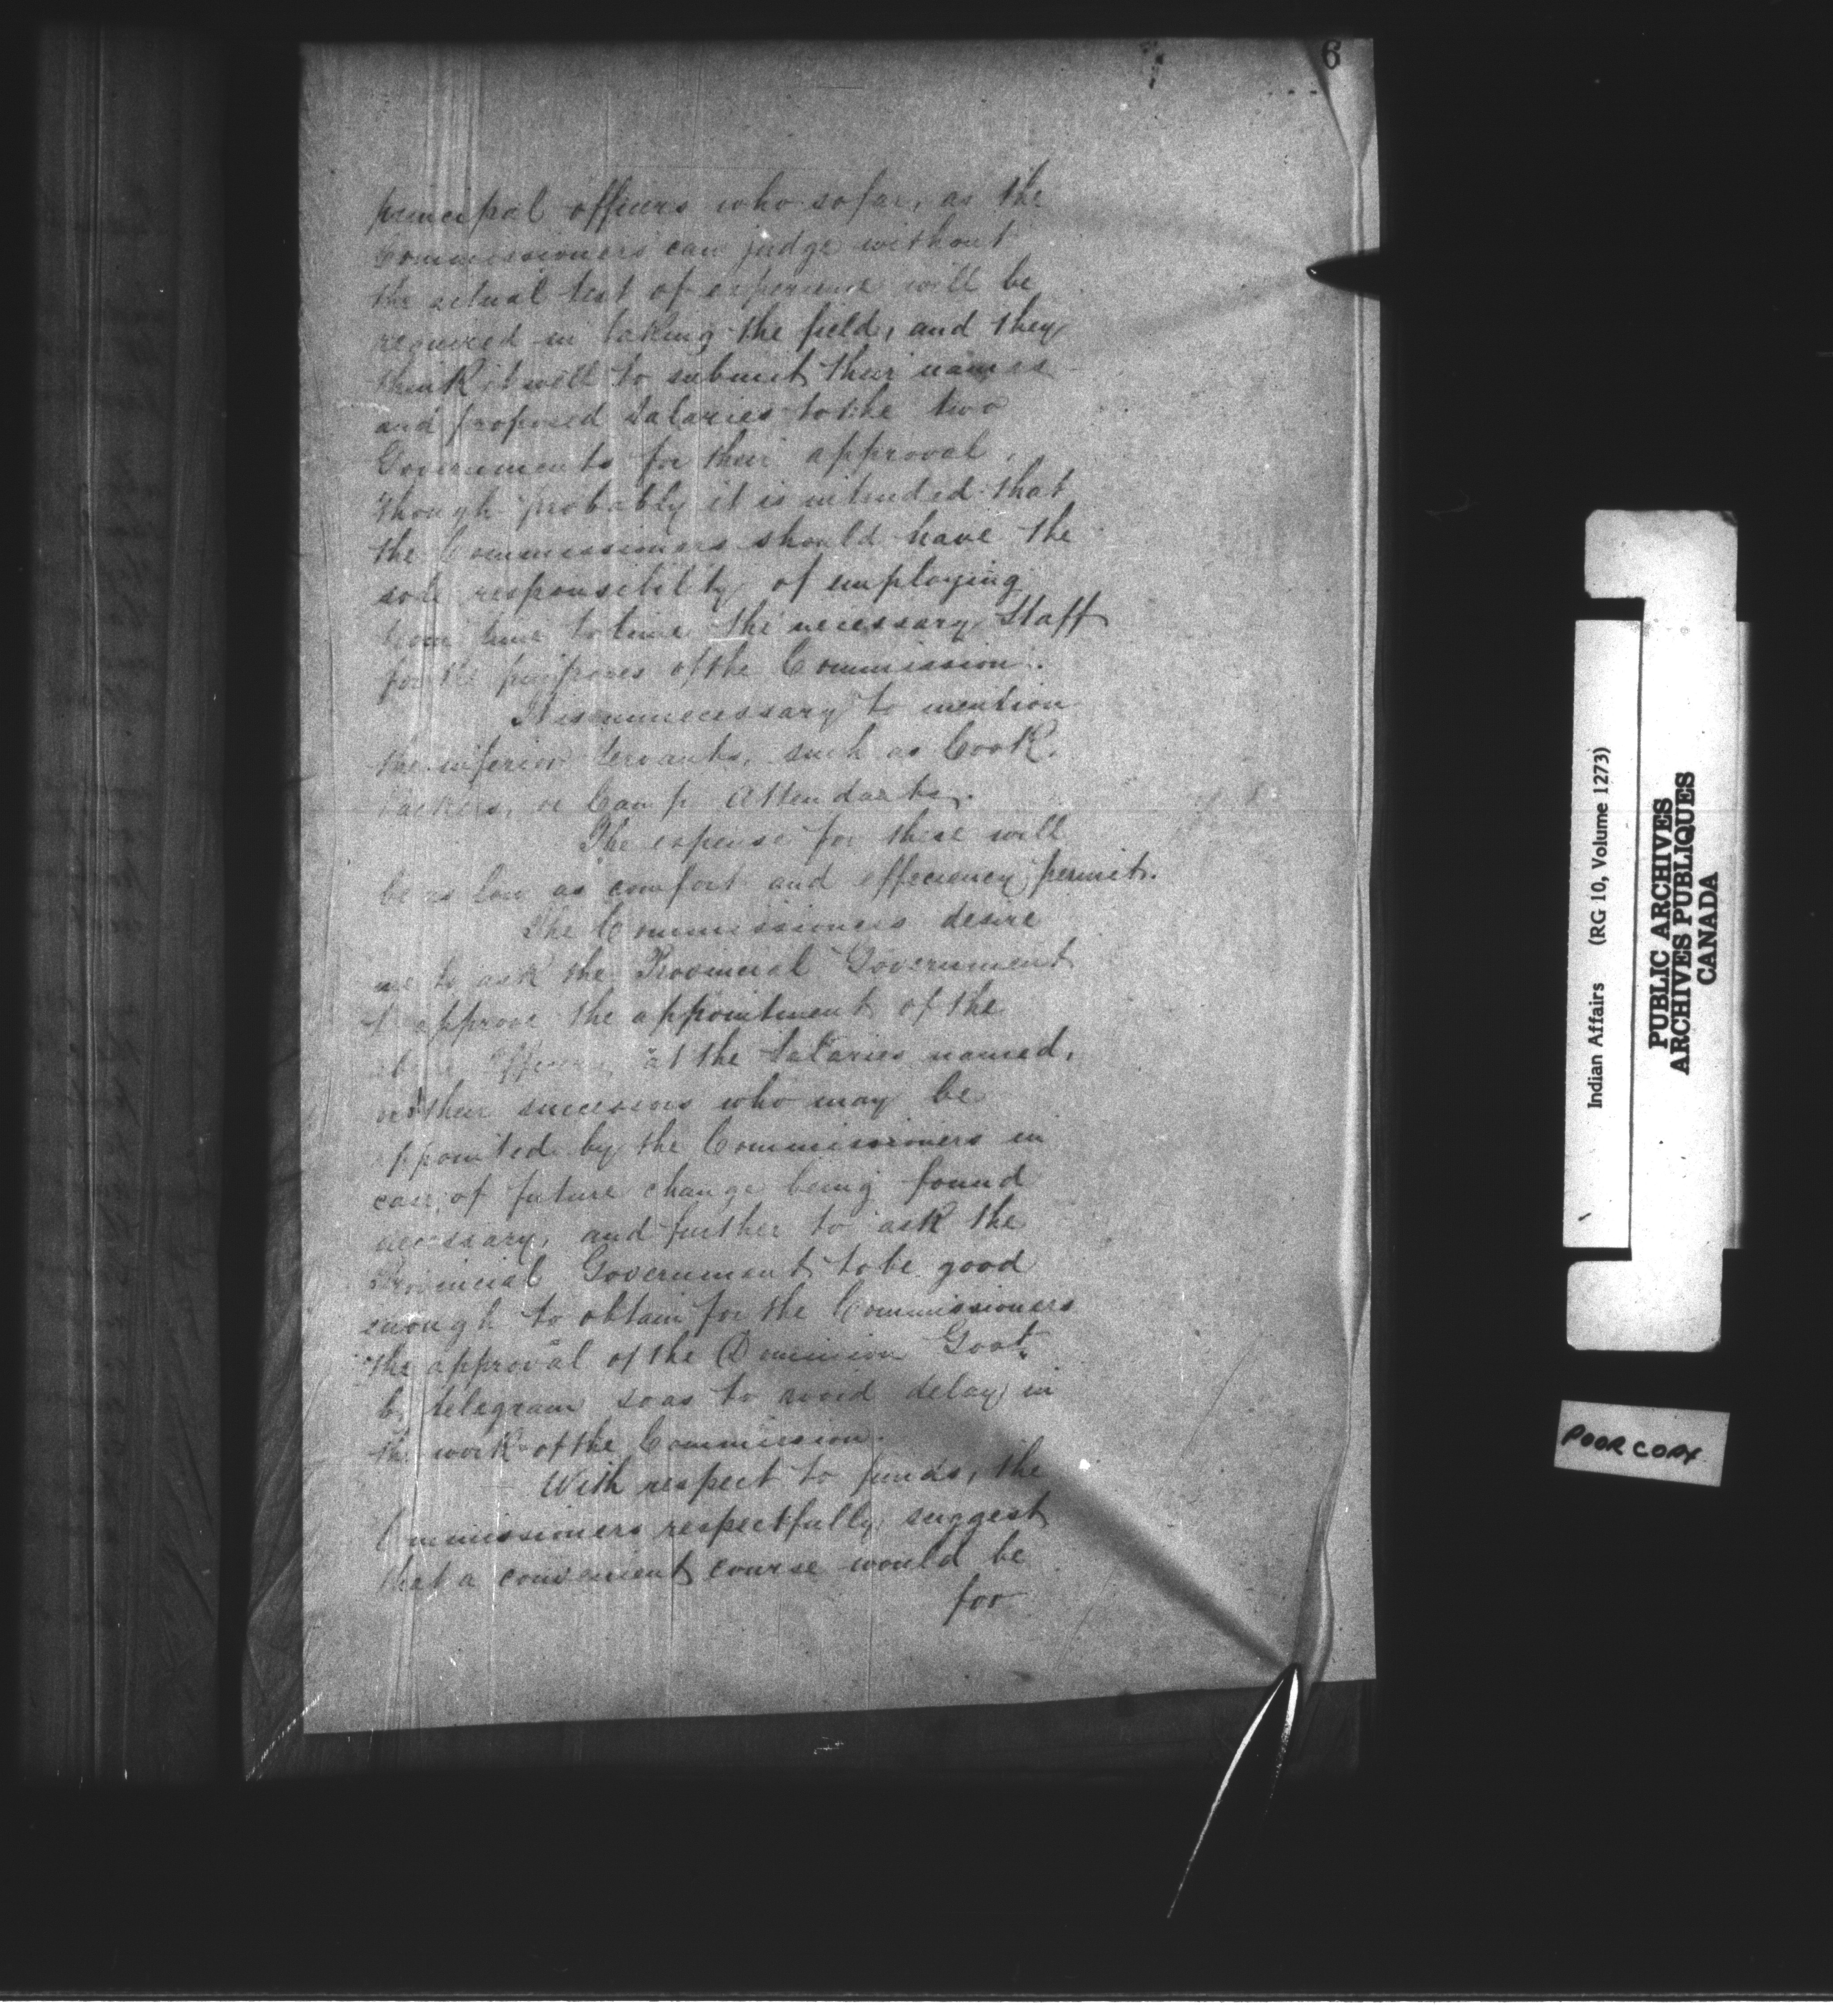 6
principal officers who so far, as the
Commissioners can judge without
the actual test of experience will be
required in taking the field, and they
think it well to submit their names
and proposed salaries to the two
Governments for their approval,
though probably it is intended that
the Commissioners should have the
sole responsibility of employing
from time to time the necessary Staff
for the purposes of the Commission.
It is unnecessary to mention
the inferior servants, such as Cook.
Packers, or Camp Attendants.
The expense for these will
be as low as comfort and efficiency permit.
The Commissioners desire
me to ask the Provincial Government
to approve the appointment of the
above Officers at the salaries named,
or their successors who may be
appointed by the Commissioners in
case of future change being found
necessary, and further to ask the
Provincial Government to be good
enough to obtain for the Commissioners
the approval of the Dominion Govt.
by telegram so as to avoid delay in
the work of the Commission.
With respect to funds, the
Commissioners respectfully suggest
that a convenient course would be
for
Indian Affairs (RG 10, Volume 1273)
PUBLIC ARCHIVES
ARCHIVES PUBLIQUES
CANADA
POOR COPY